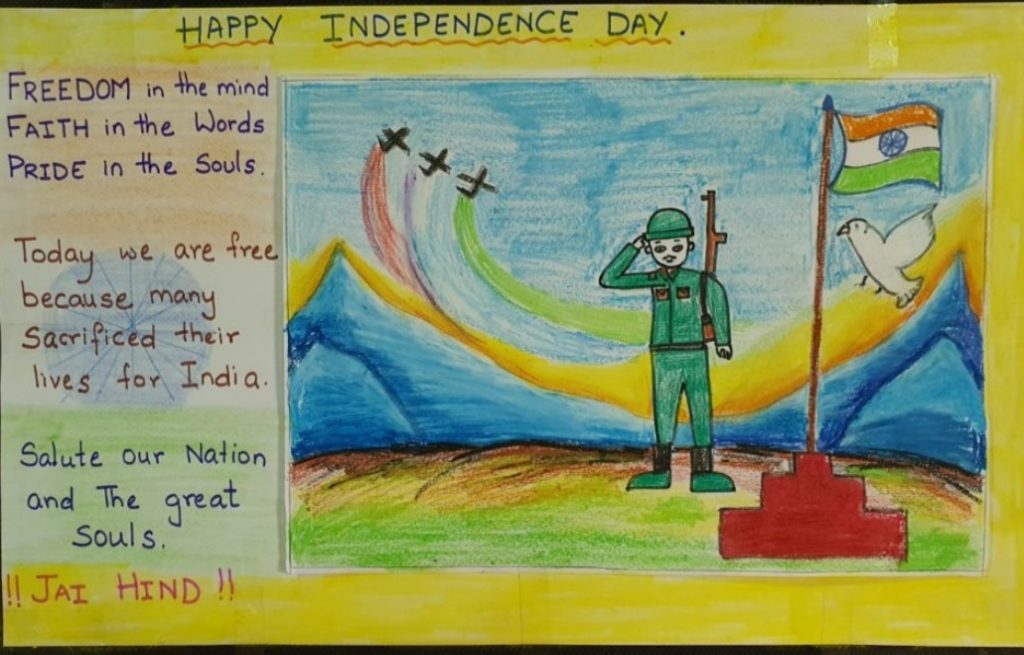 HAPPY INDEPENDENCE DAY.
FREEDOM in the mind
FAITH in the Words
PRIDE in the Souls.
Today we are free
because many
Sacrificed their
lives for India.
Salute our Nation
and The great
Souls.
!! JAI HIND !!